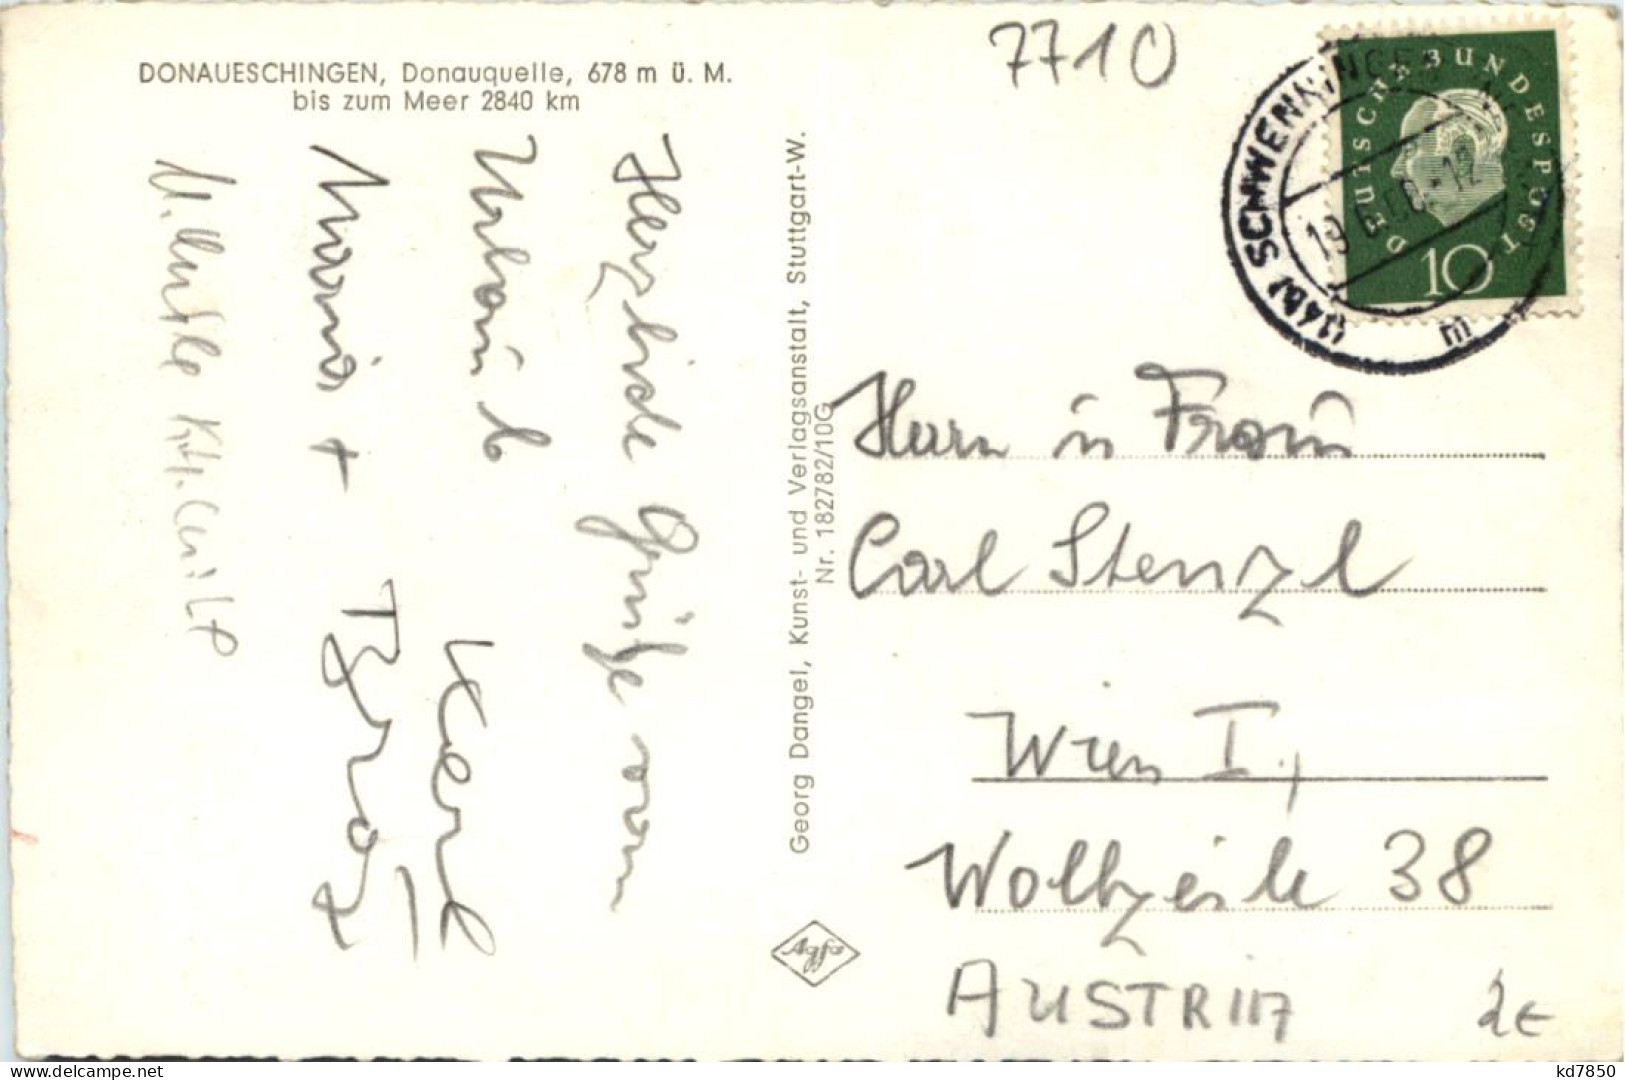 DONAUESCHINGEN, Donauquelle, 678 m ü. M.
bis zum Meer 2840 km
7710
DEUTSCHE BUNDESPOST
10
(14b) SCHWENNINGEN
m
Herzliche Grüße vom
Urlaub
Maria +
Karl
Georg Dangel, Kunst- und Verlagsanstalt, Stuttgart-W.
Nr. 182782/10G
Agfa
Herrn u Frau
Carl Stenzl
Wien I,
Wollzeile 38
AUSTRIA
2€
kd7850